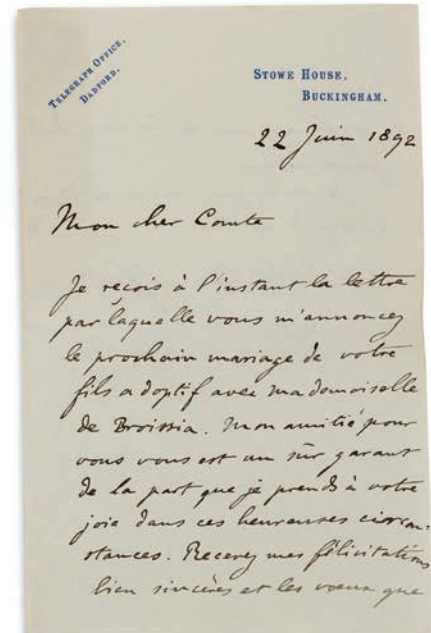 TELEGRAPH OFFICE.
DADFORD.
STOWE HOUSE,
BUCKINGHAM.
22 Juin 1892
Mon cher Comte
Je reçois à l'instant la lettre
par laquelle vous m'annoncez
le prochain mariage de votre
fils adoptif avec mademoiselle
de Broissia. Mon amitié pour
vous vous est un sûr garant
de la part que je prends à votre
joie dans ces heureuses circon-
stances. Recevez mes félicitations
bien sincères et les vœux que